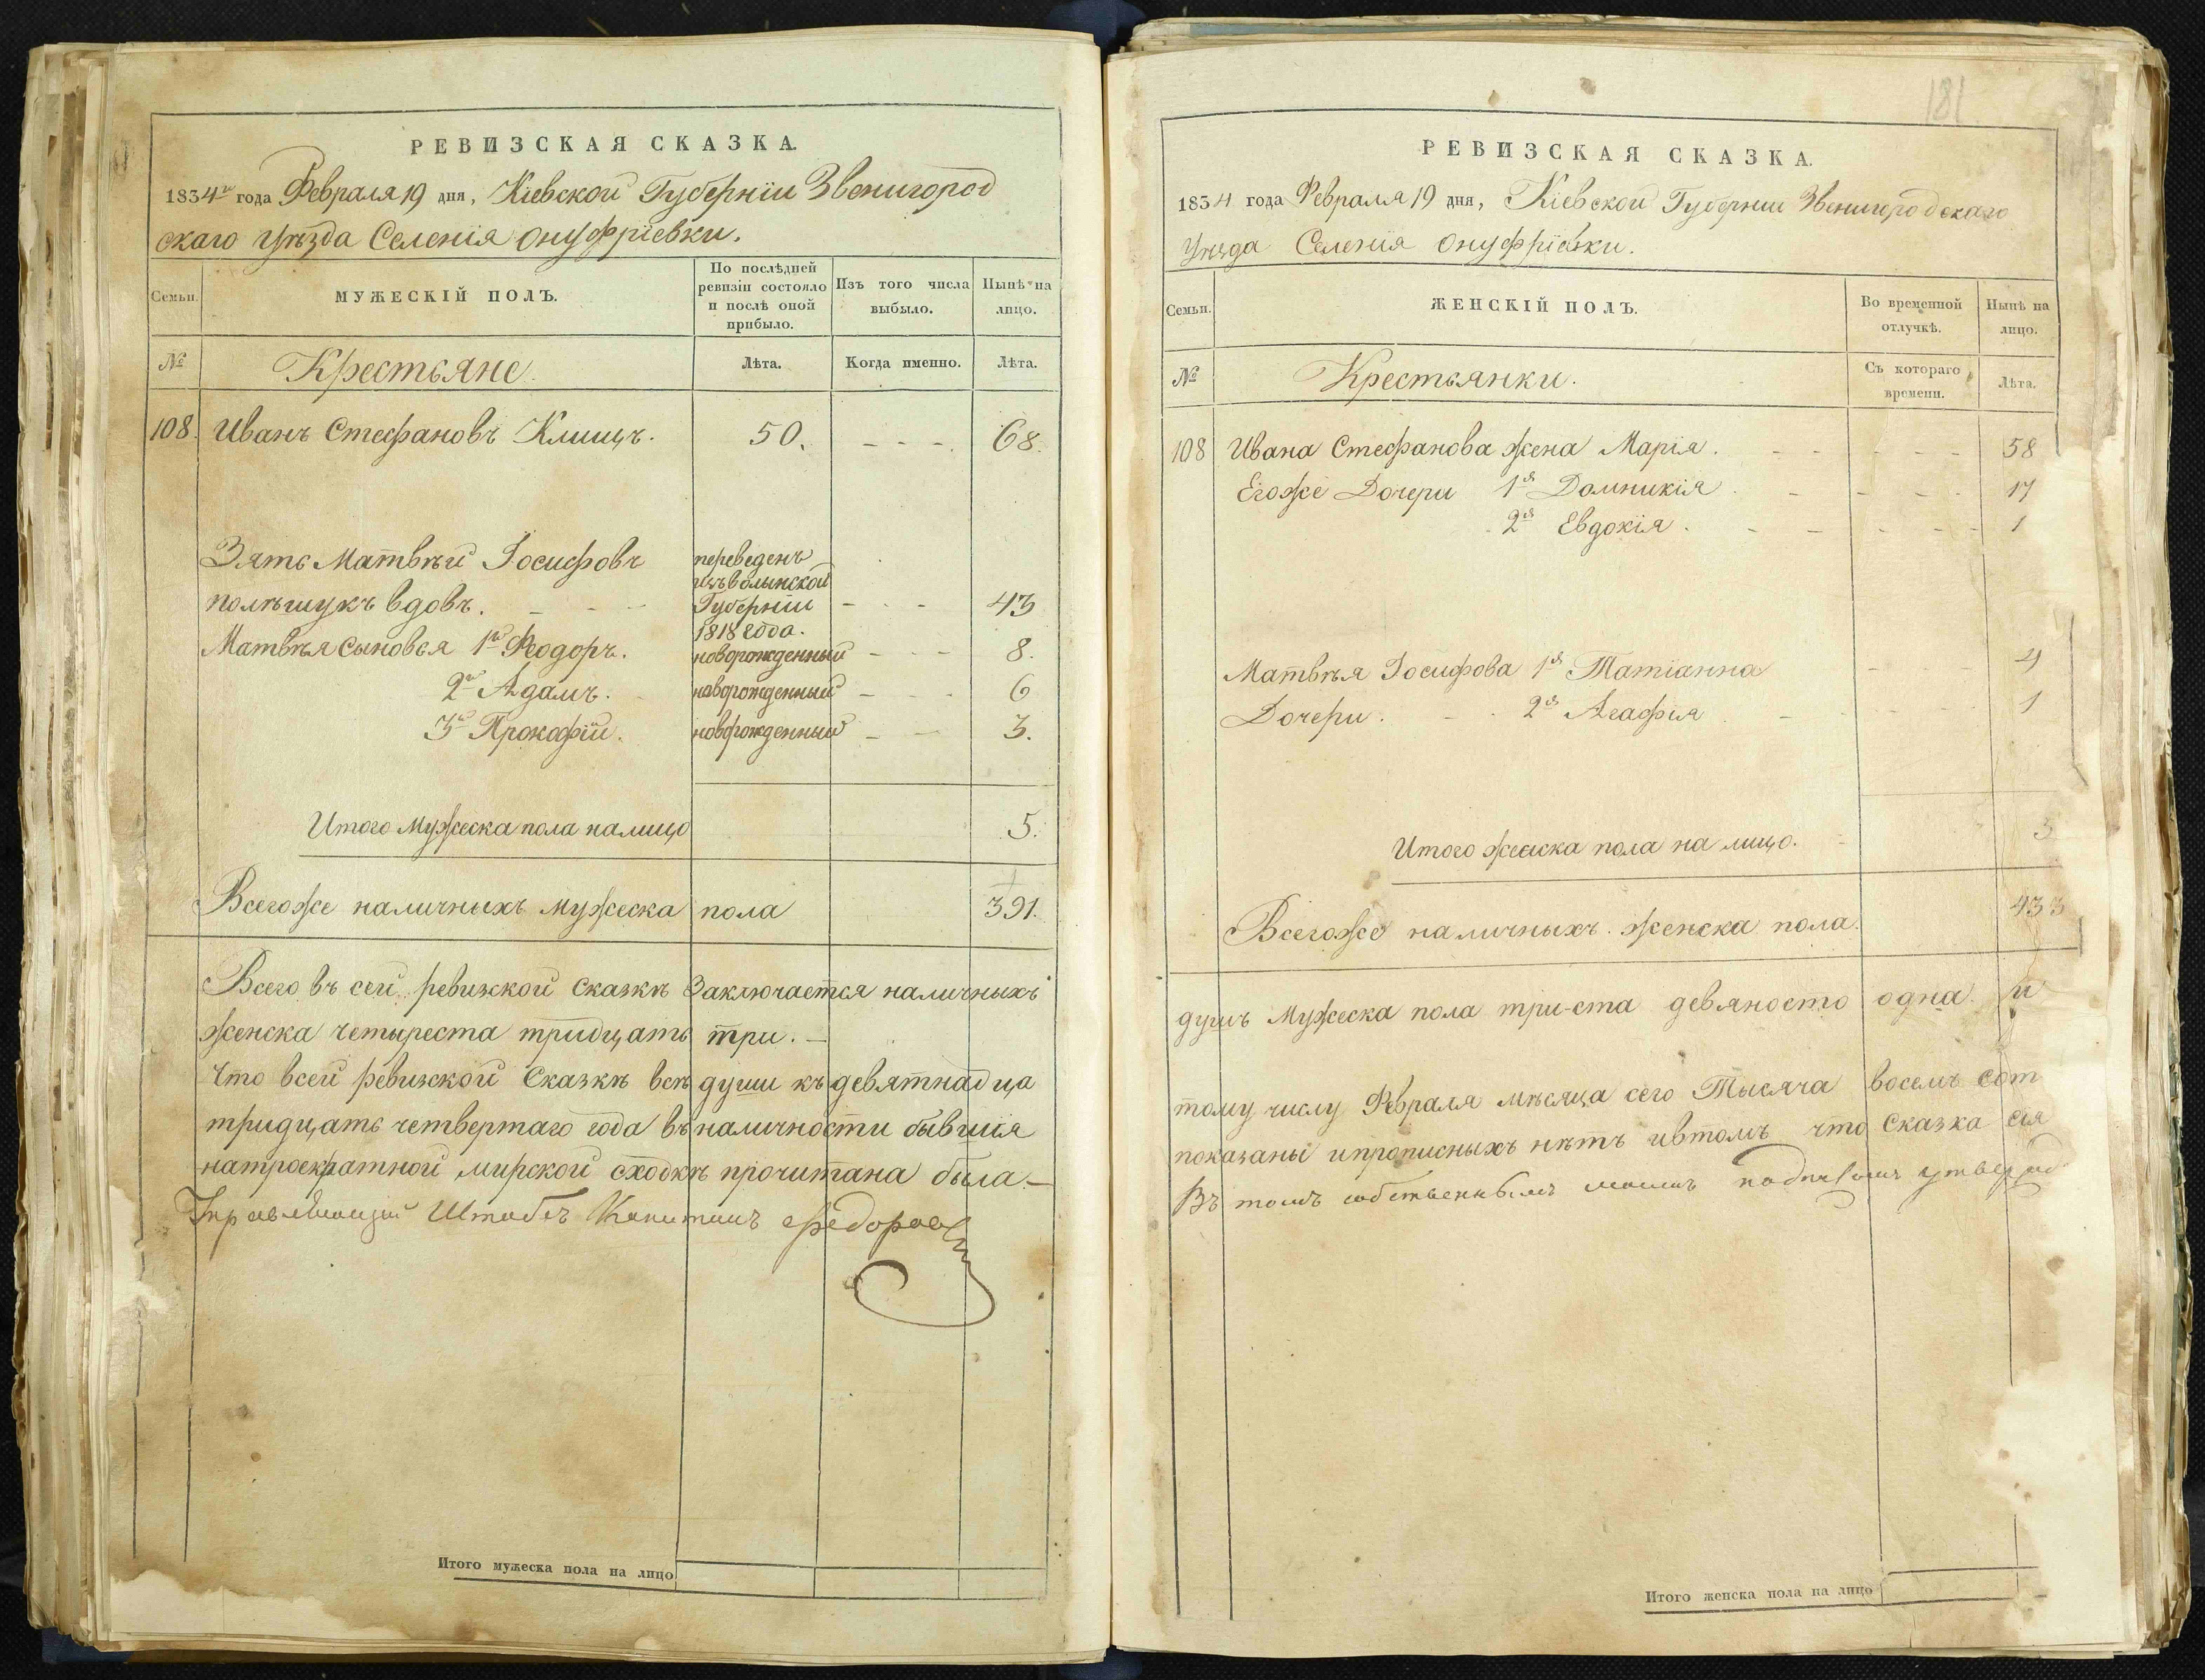 РЕВИЗСКАЯ СКАЗКА.
1834го года Февраля 19 дня, Кіевской Губерніи Звенигород
скаго уѣзда Селенія Онуфріевки.
Семьи.
МУЖЕСКІЙ ПОЛЪ.
По послѣдней ревизіи состояло и послѣ оной прибыло.
Изъ того числа выбыло.
Нынѣ на лицо.
№
Крестьяне.
Лѣта.
Когда именно.
Лѣта.
108. Иванъ Стефановъ Клищъ. 50. - - - 68.
Зять Матвѣй Іосифовъ
полѣщукъ вдовъ. - - -
переведенъ
изъ волынской
Губерніи
1818 года.
- - - 43
Матвѣя сыновья 1й Феодоръ. новорожденный - - - 8.
2й Адамъ. новорожденный - - - 6
3й Прокофій. новорожденный - - 3.
Итого Мужеска пола налицо 5.
Всегоже наличныхъ мужеска пола 391.
Всего въ сей ревизской сказкѣ Заключается наличныхъ
женска четыреста тридцать три. -
Что всей ревизской Сказкѣ всѣ души къ девятнадца
тридцать четвертаго года въ наличности бывшія
натроекратной мирской сходкѣ прочитана была. -
Управляющій Штабсъ Капитанъ Федоровъ
Итого мужеска пола на лицо
181
РЕВИЗСКАЯ СКАЗКА.
1834 года Февраля 19 дня, Кіевской Губерніи Звенигородскаго
Уѣзда Селенія Онуфріевки.
Семьи.
ЖЕНСКІЙ ПОЛЪ.
Во временной отлучкѣ.
Нынѣ на лицо.
№
Крестьянки.
Съ котораго времени.
Лѣта.
108 Ивана Стефанова жена Марія. - - - - - 58
Егоже Дочери 1я Домникія. - - - 17
2я Евдокія. - - - - - 1
Матвѣя Іосифова 1я Татіанна - - 4
Дочери. - - 2я Агафія - - - 1
Итого женска пола на лицо. 5
Всегоже наличныхъ женска пола. 433
душъ Мужеска пола три-ста девяносто одна и
тому числу Февраля мѣсяца сего Тысяча восемъ сот
показаны ипрописныхъ нѣтъ ивтомъ что Сказка сія
Въ томъ собственнымъ моимъ
Итого женска пола на лицо